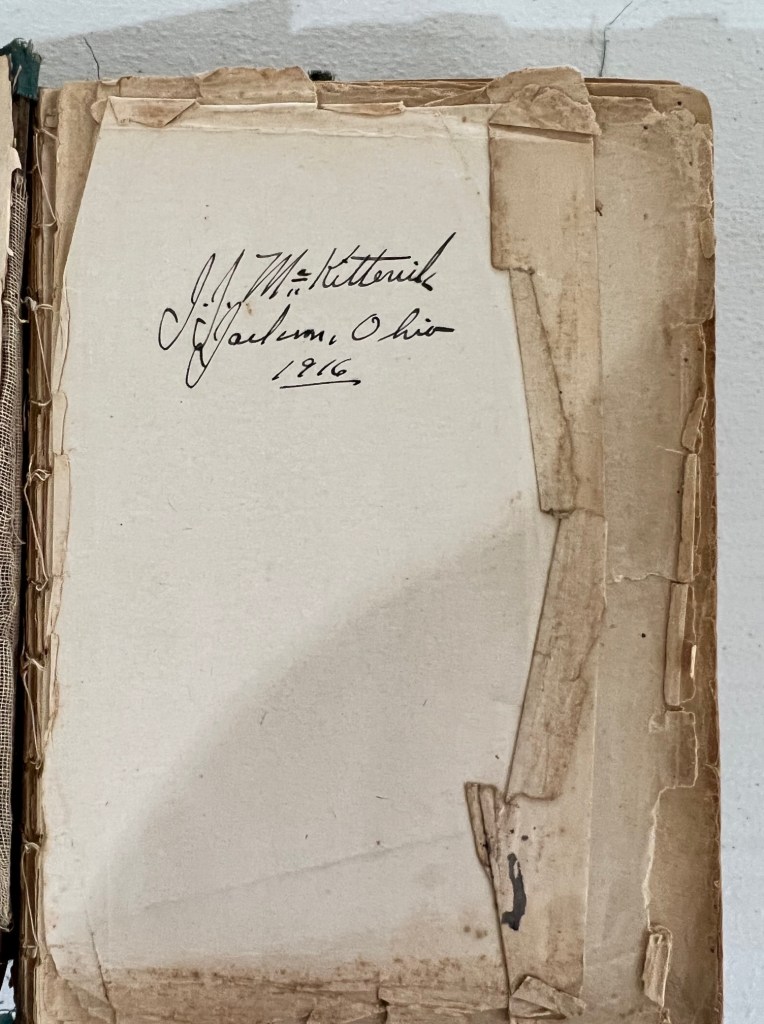 J. J. McKitterick
Jackson, Ohio
1916